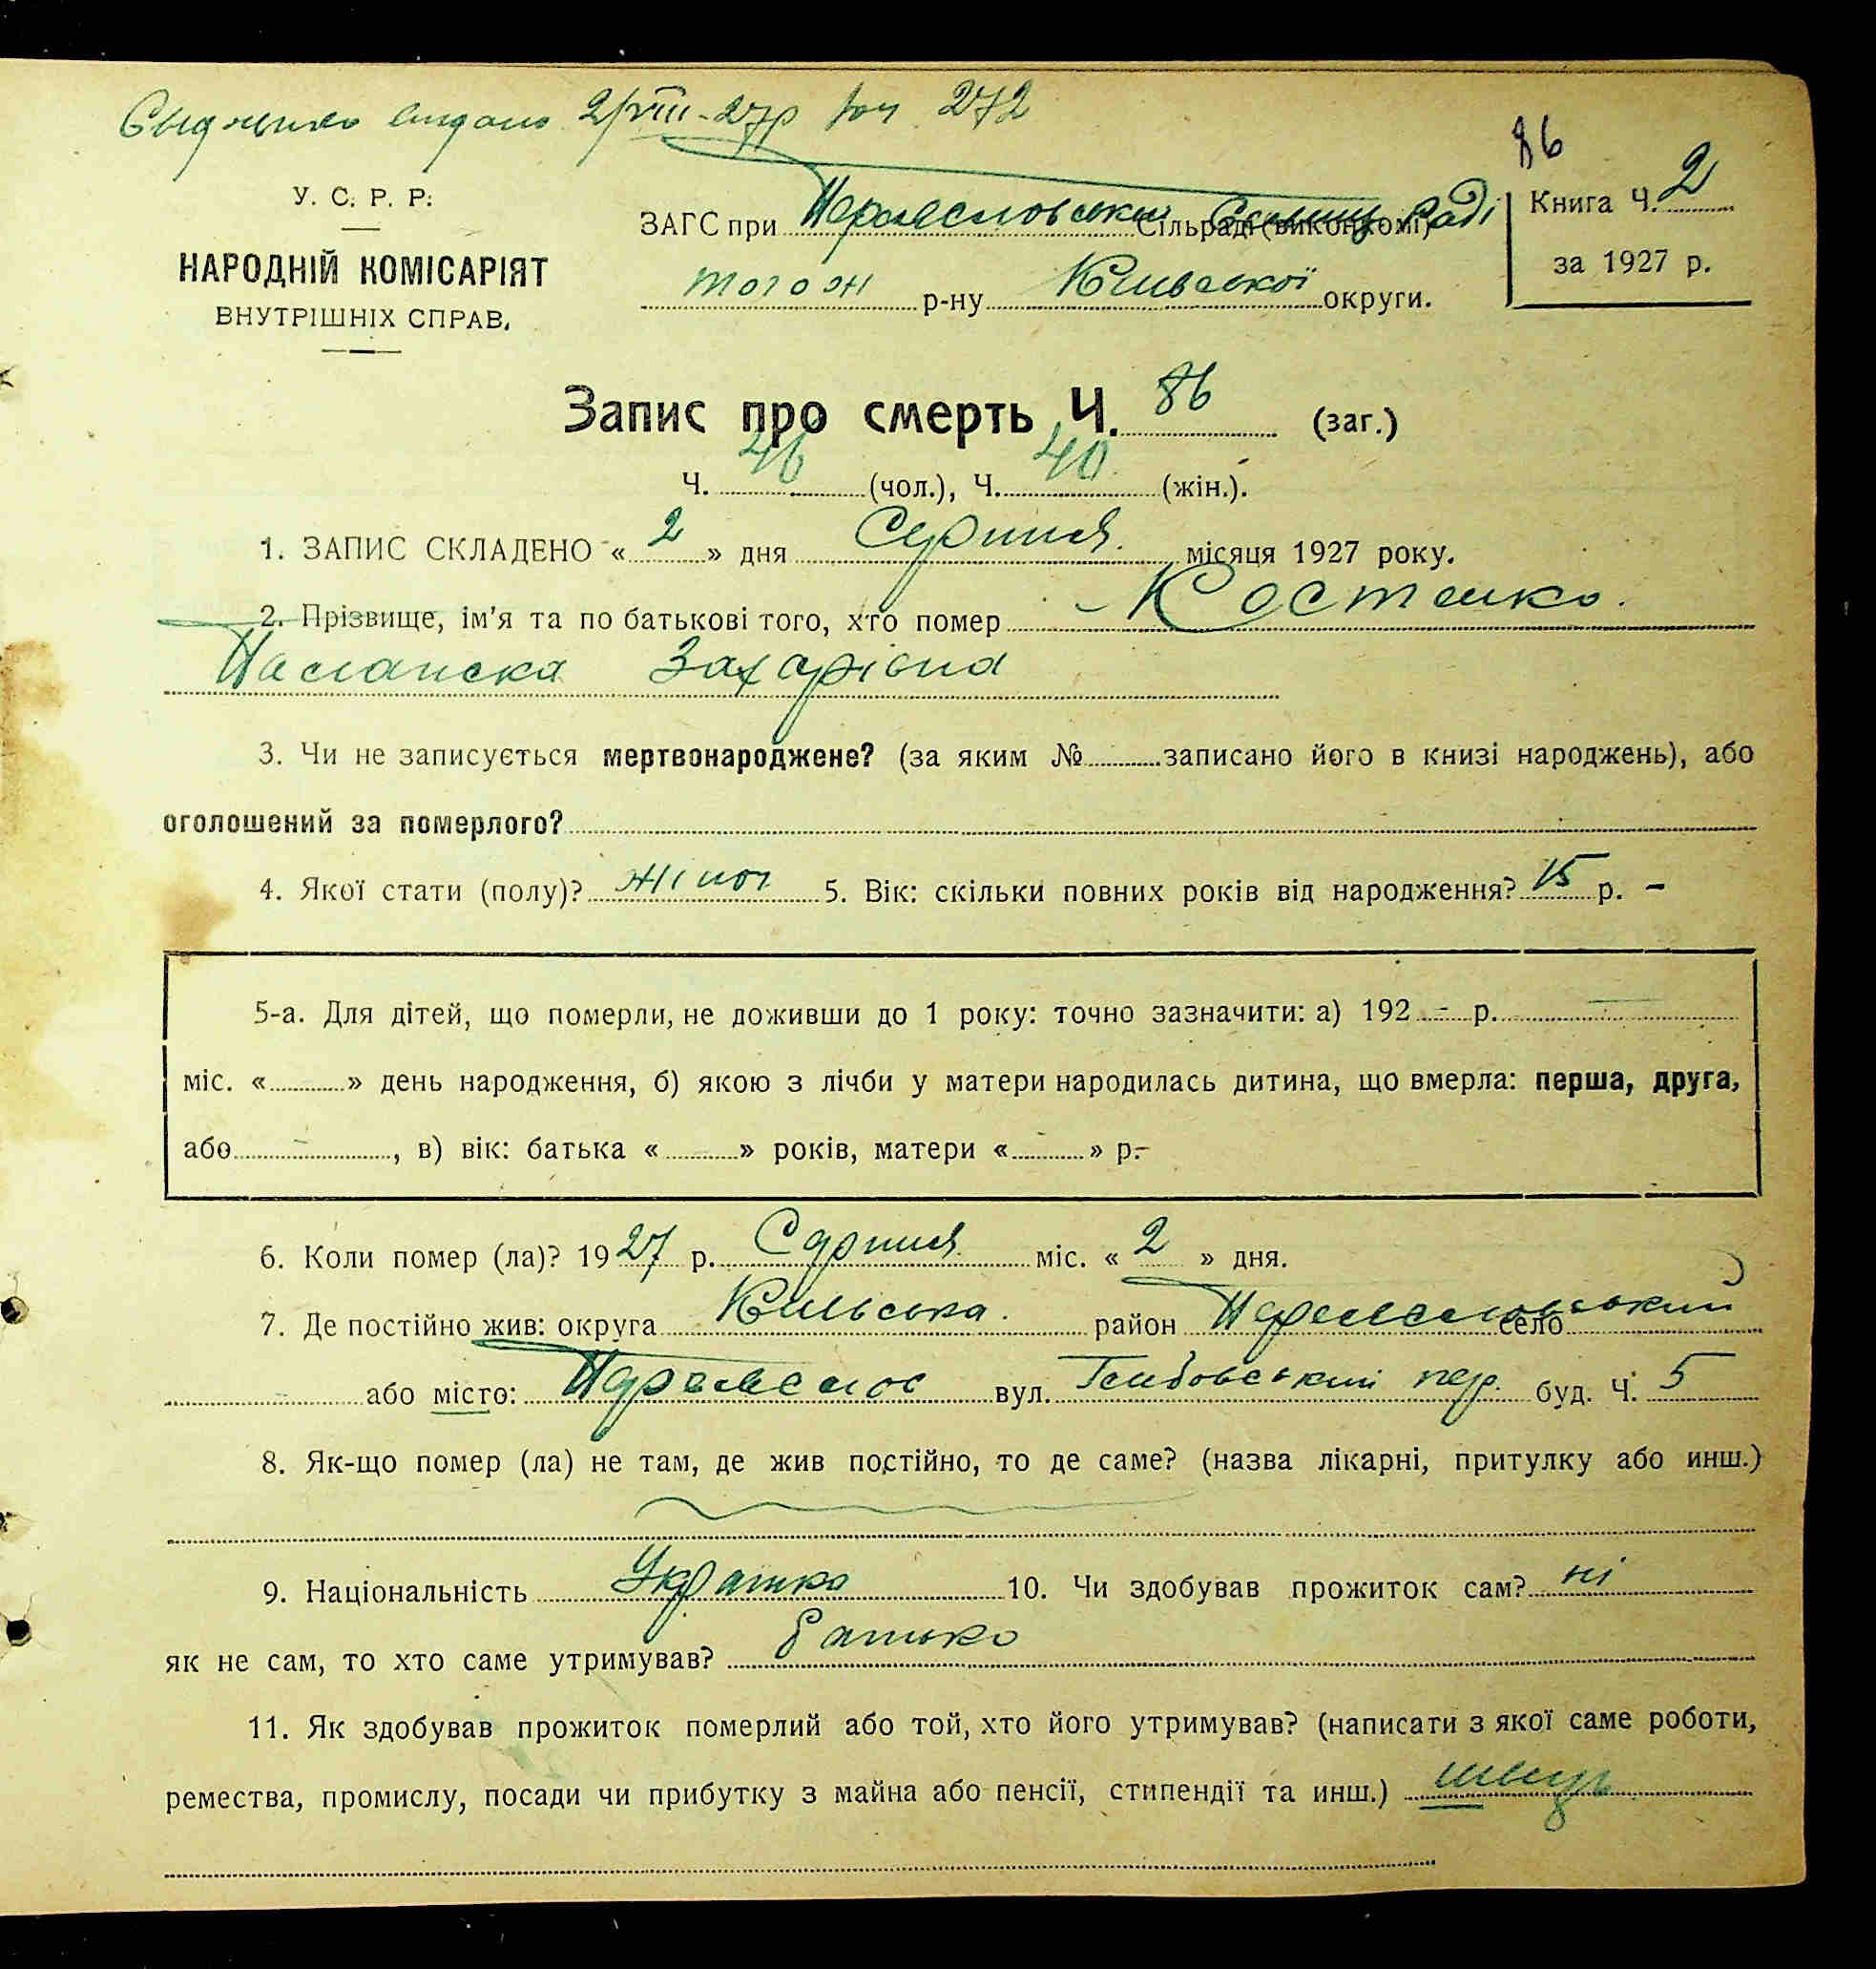 видано 2/VIII-27р 272
86
У. С. Р. Р.
НАРОДНІЙ КОМІСАРІЯТ
ВНУТРІШНІХ СПРАВ.
ЗАГС при Переяславський Сільраді (виконкомі) Раді
того ж р-ну Київської округи.
Книга Ч. 2
за 1927 р.
Запис про смерть Ч. 86 (заг.)
Ч. 46 (чол.), Ч. 40 (жін.).
1. ЗАПИС СКЛАДЕНО « 2 » дня Серпня місяця 1927 року.
2. Прізвище, ім'я та по батькові того, хто помер Костенко.
Захарівна
3. Чи не записується мертвонароджене? (за яким № записано його в книзі народжень), або
оголошений за померлого?
4. Якої стати (полу)? жіноч 5. Вік: скільки повних років від народження? 15 р. –
5-а. Для дітей, що померли, не доживши до 1 року: точно зазначити: а) 192 - р.
міс. « » день народження, б) якою з лічби у матери народилась дитина, що вмерла: перша, друга,
або , в) вік: батька « » років, матери « » р.
6. Коли помер (ла)? 19 27 р. Серпня міс. « 2 » дня.
7. Де постійно жив: округа Київська. район Переяславський село
або місто: Переяслов вул. пер. буд. Ч. 5
8. Як-що помер (ла) не там, де жив постійно, то де саме? (назва лікарні, притулку або инш.)
9. Національність Українка 10. Чи здобував прожиток сам? ні
як не сам, то хто саме утримував? батько
11. Як здобував прожиток померлий або той, хто його утримував? (написати з якої саме роботи,
ремества, промислу, посади чи прибутку з майна або пенсії, стипендії та инш.) швець